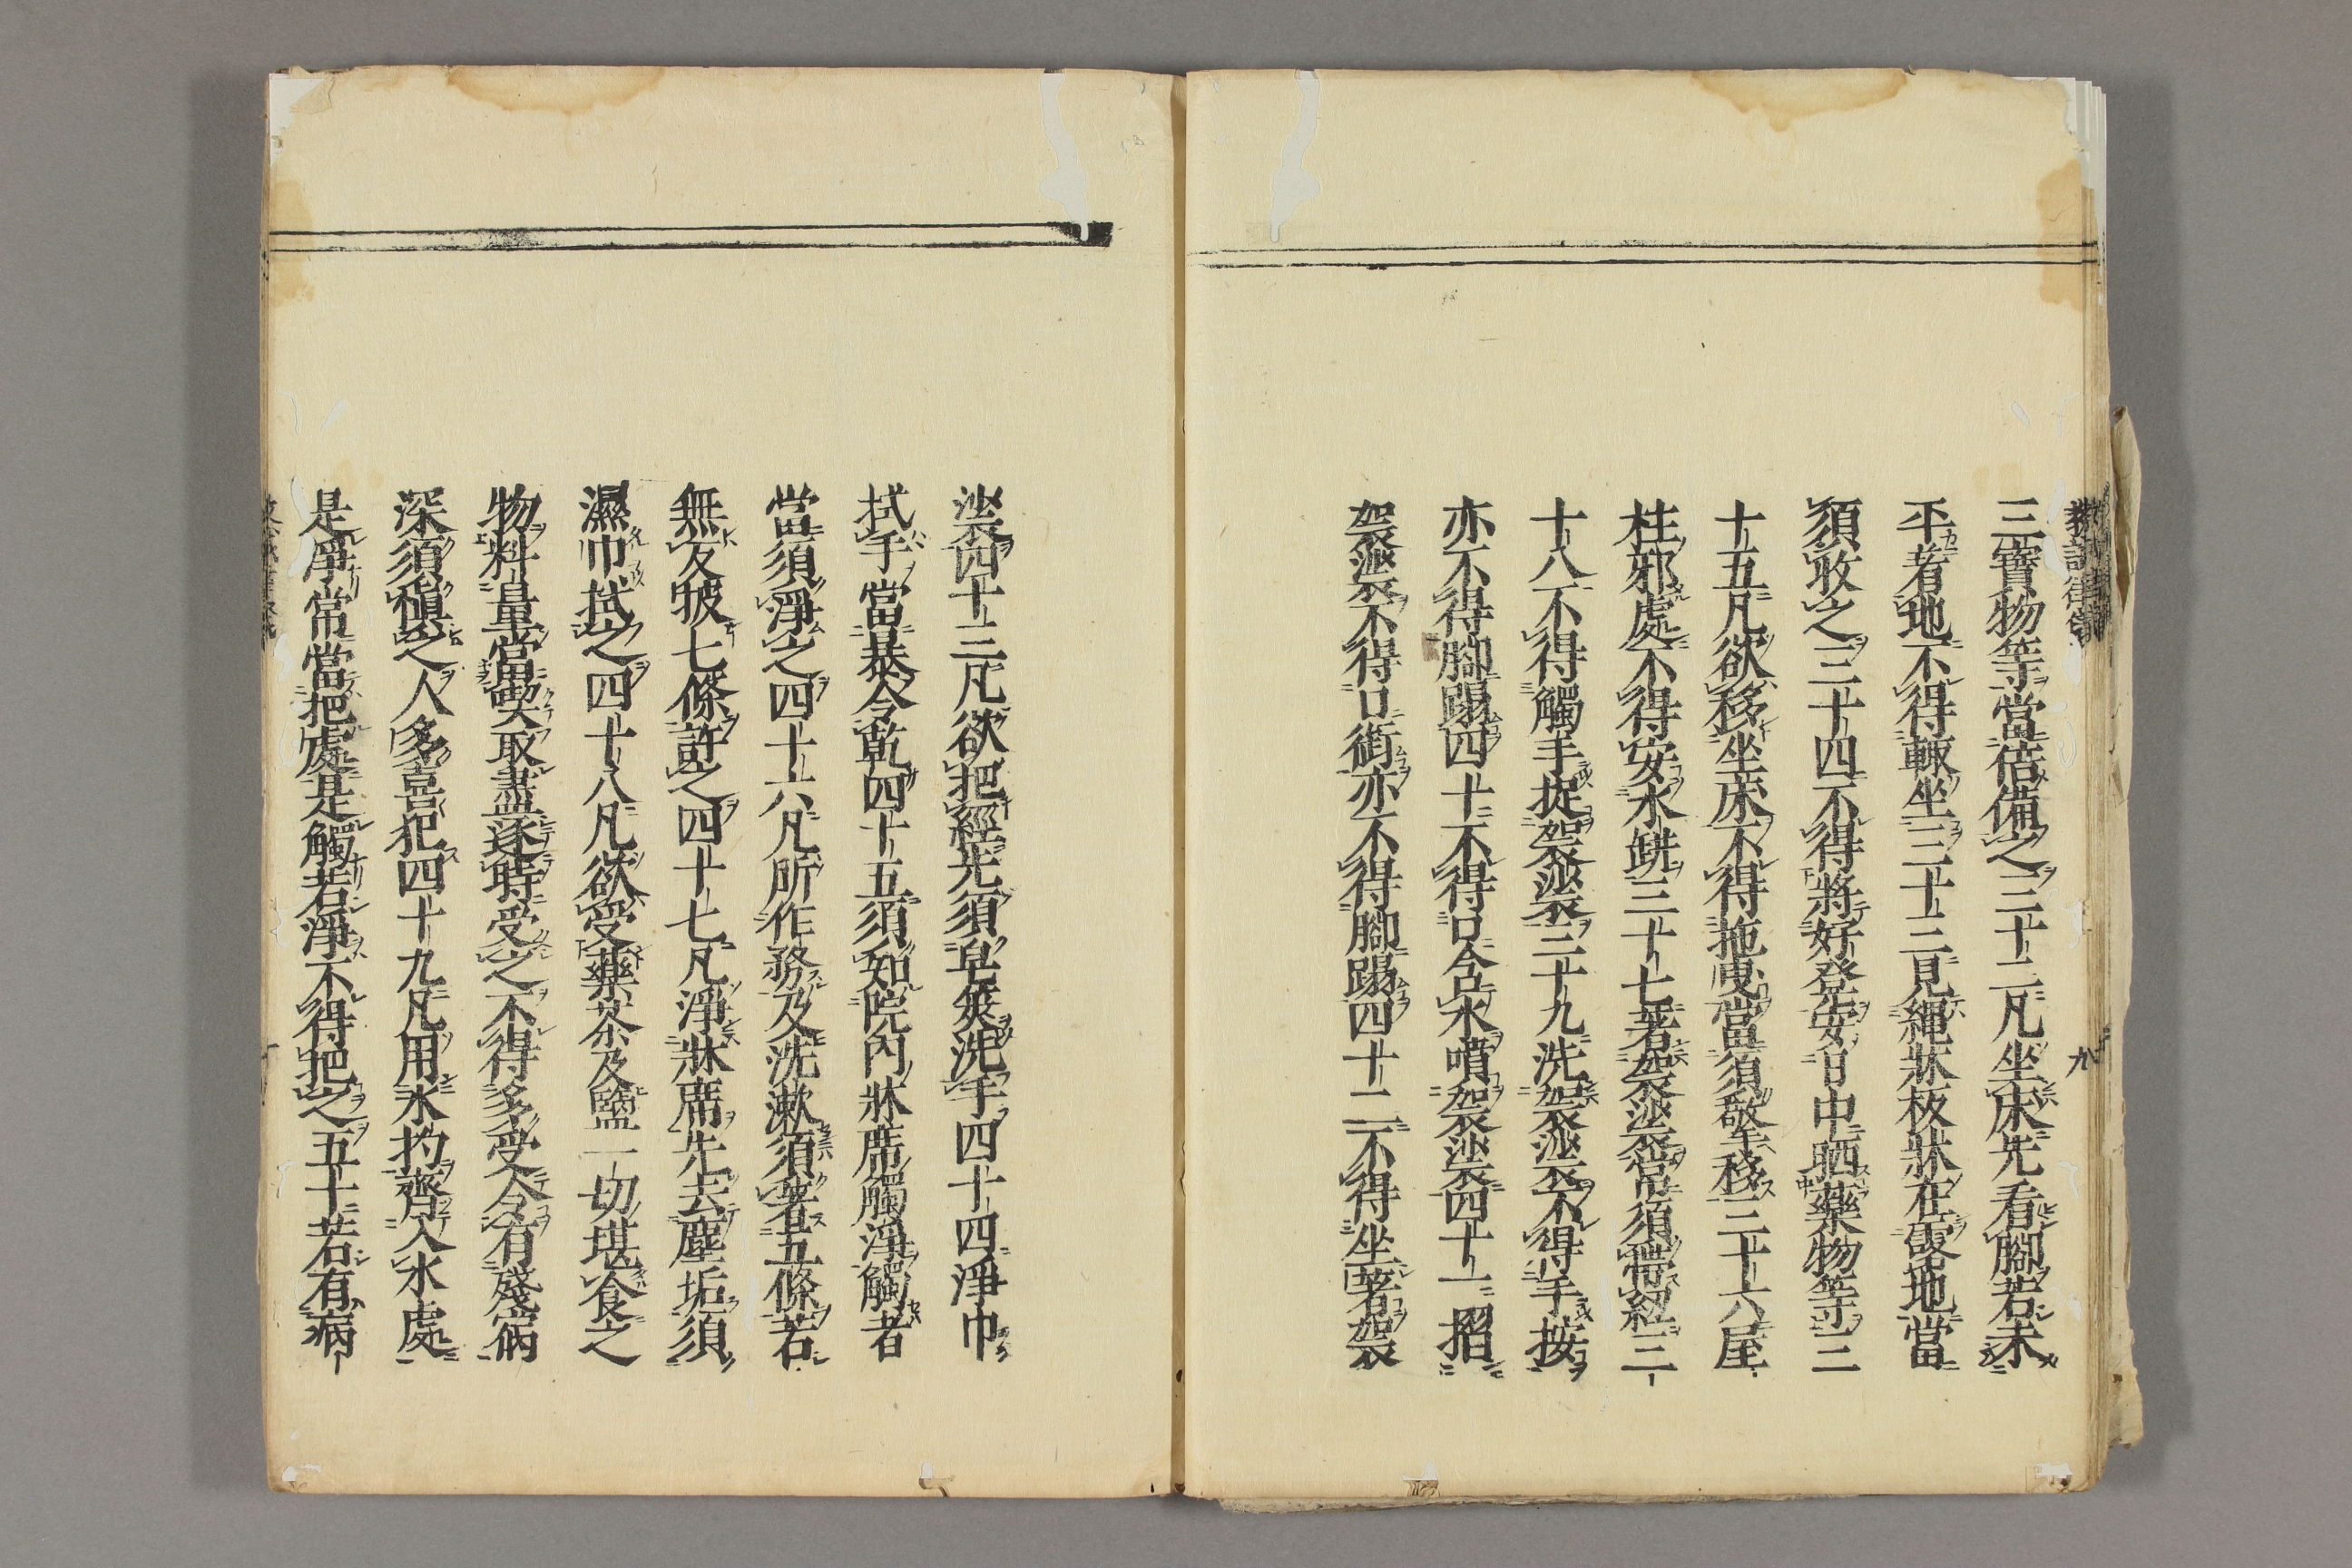 三寶物等當倍備之三十二凡坐床先看腳若未
平者地不得輙坐三十三見繩牀板牀在露地當
須收之三十四不得將好登安日中晒藥物等三
十五凡欲移坐床不得拖曳當須敬手移三十六屋
柱邪處不得安水缾三十七著袈裟常須帶紐三
十八不得觸手捉袈裟三十九洗袈裟不得手按
亦不得腳踢四十不得口含水噴袈裟四十一摺
袈裟不得口銜亦不得腳踢四十二不得坐著袈
裟四十三凡欲把經先須皂莢洗手四十四淨巾
拭手當暴令乾四十五須知院內牀席觸淨觸者
當須淨之四十六凡所作務及洗漱須著五條若
無及破七條許之四十七凡淨牀席先去塵垢須
濕巾拭之四十八凡欲受藥茶及鹽一切堪食之
物料量當喫取盡逐時受之不得多受令有殘宿
深須愼之人多喜犯四十九凡用水杓齊入水處
是淨常當把處是觸若淨不得把之五十若有病